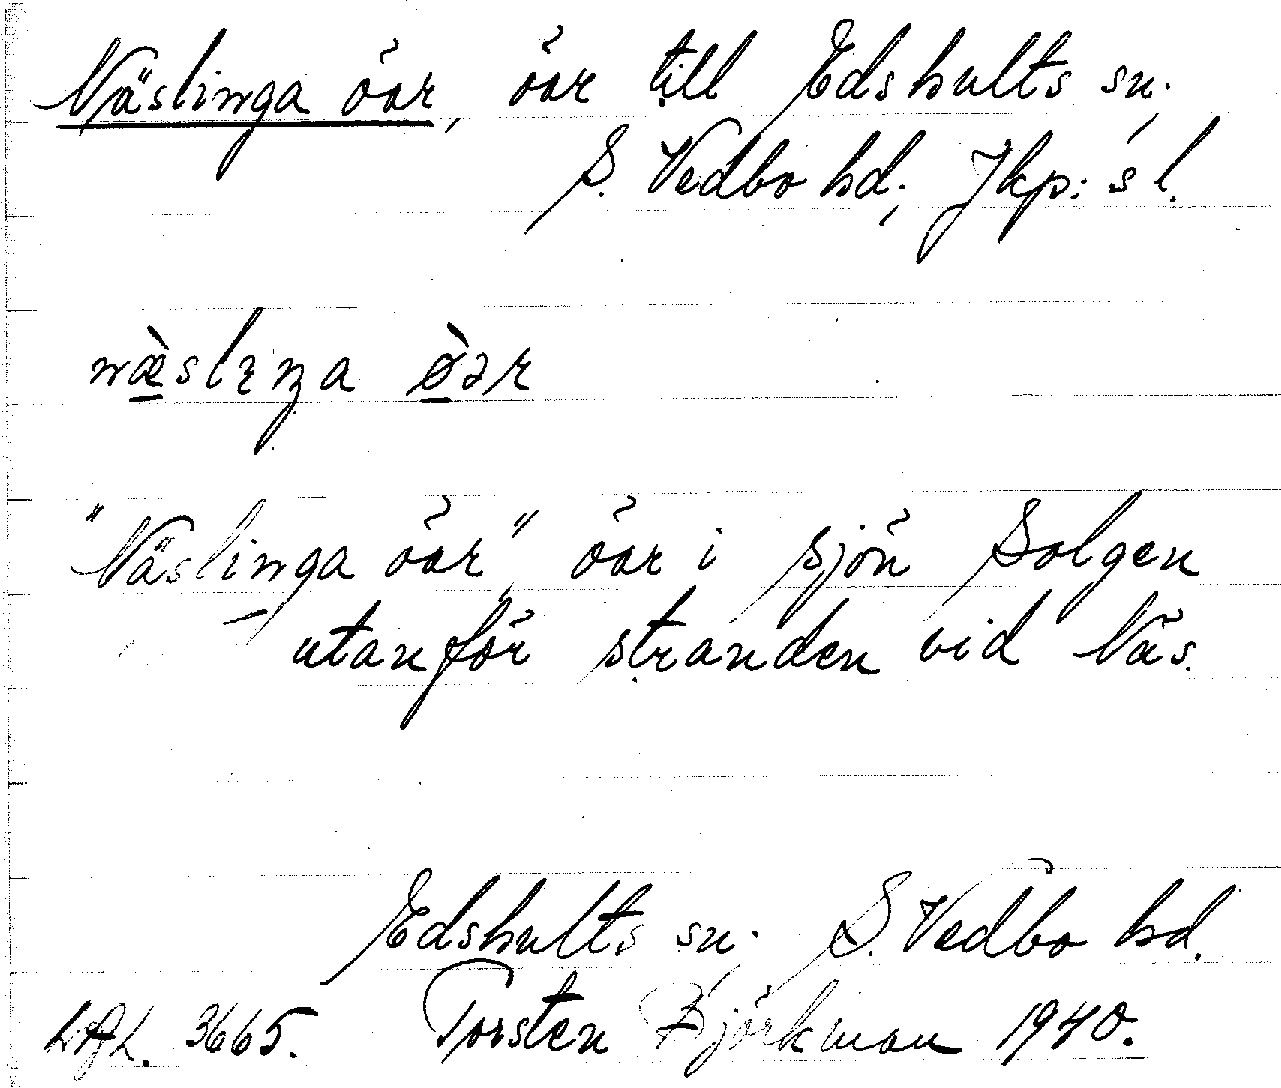 Näslinga öar, öar till Edshults sn.,
S. Vedbo hd., Jkp:s l.
næ̀slıŋa ø̀ər
"Näslinga öar", öar i sjön Solgen
utanför stranden vid Näs.
Edshults sn., S. Vedbo hd.
3665. Torsten Björkman 1940.